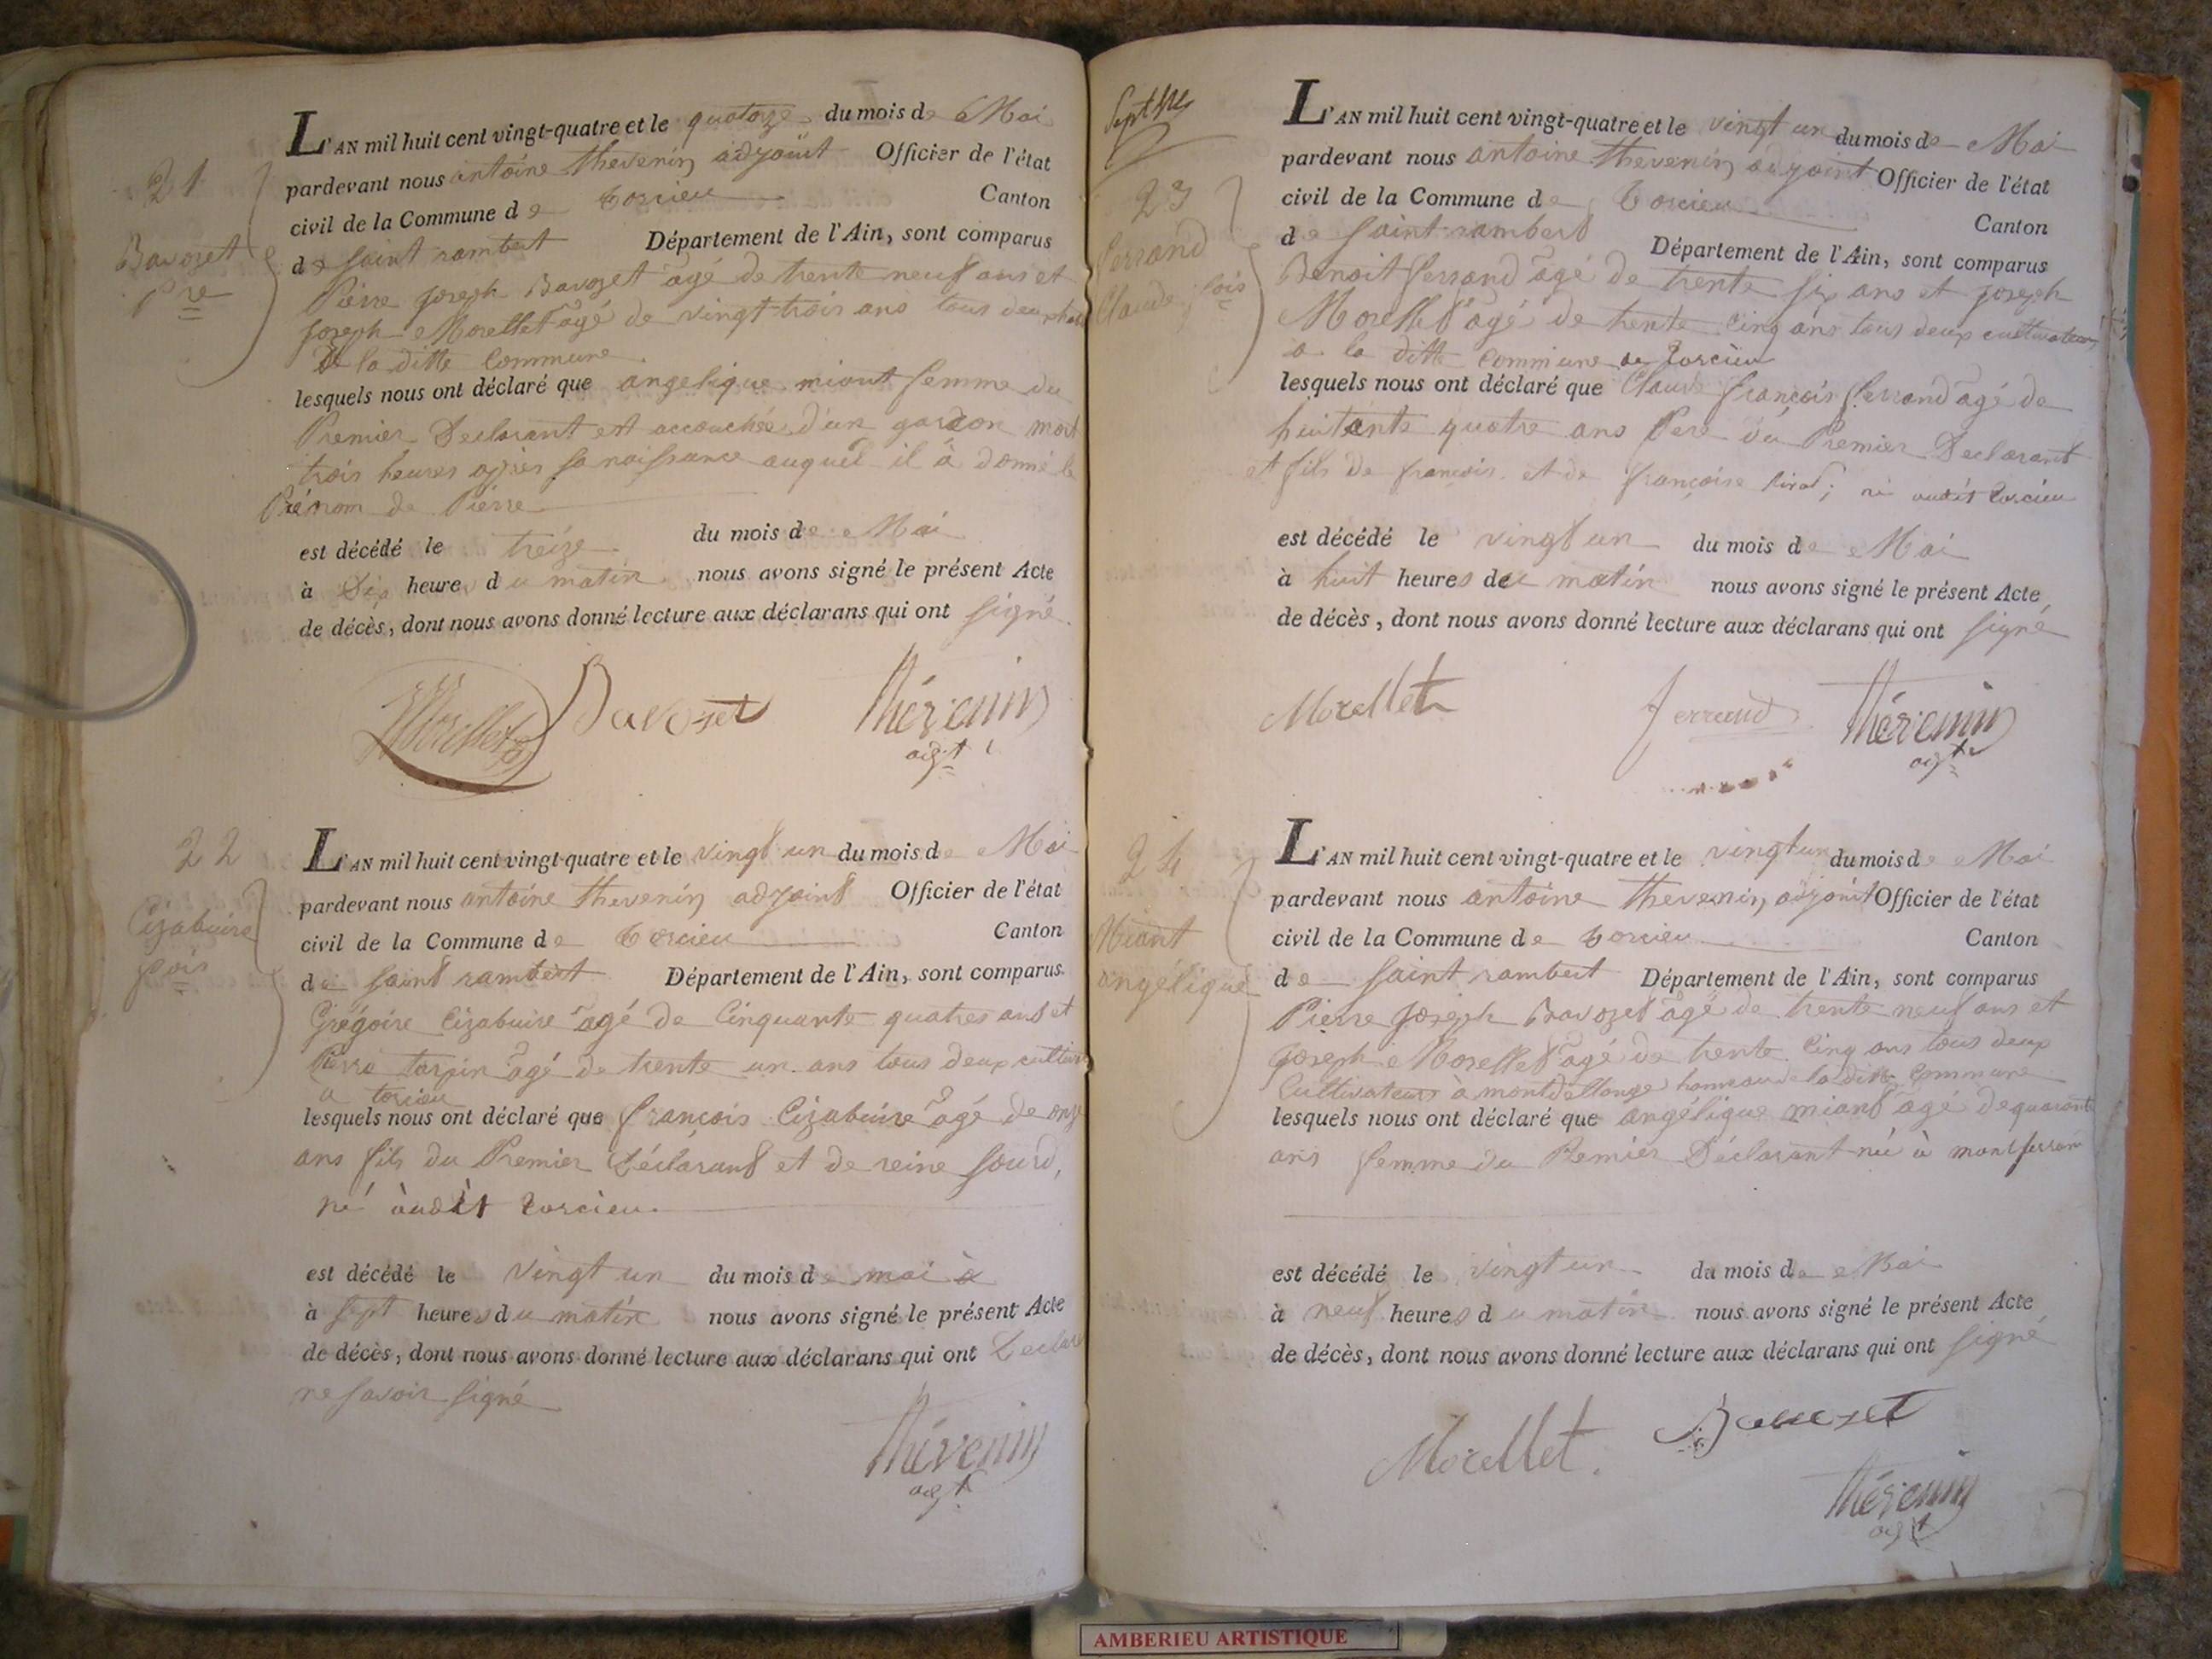 21
Bavozet
Pre
L'AN mil huit cent vingt-quatre et le quatorze du mois de Mai
pardevant nous antoine thevenin adjoint Officier de l'état
civil de la Commune de torcieu Canton
de saint rambert Département de l'Ain, sont comparus
Pierre joseph Bavozet agé de trente neuf ans et
joseph Morellet agé de vingt trois ans tous deux
de la ditte commune
lesquels nous ont déclaré que angelique miant femme du
Premier Declarant est accouchée d'un garcon mort
trois heures apres sa naissance auquel il a donné le
Prénom de Pierre
est décédé le treize du mois de Mai
à Dix heures du matin nous avons signé le présent Acte
de décès, dont nous avons donné lecture aux déclarans qui ont signé
Morellet Bavozet Thévenin
adjt
22
Cizabuire
fois
L'AN mil huit cent vingt-quatre et le vingt un du mois de Mai
pardevant nous antoine thevenin adjoint Officier de l'état
civil de la Commune de torcieu Canton
de saint rambert Département de l'Ain, sont comparus
Grégoire Cizabuire agé de Cinquante quatres ans et
Pierre tarpin agé de trente un ans tous deux
a torcieu
lesquels nous ont déclaré que françois Cizabuire agé de onze
ans fils du Premier Déclarant et de reine sourd,
né audit torcieu
est décédé le vingt un du mois de mai
à sept heures du matin nous avons signé le présent Acte
de décès, dont nous avons donné lecture aux déclarans qui ont
ne savoir signé
Thévenin
adjt
Septme
23
ferrand
Claude fois
L'AN mil huit cent vingt-quatre et le vingt un du mois de Mai
pardevant nous antoine thevenin adjoint Officier de l'état
civil de la Commune de torcieu Canton
de saint rambert Département de l'Ain, sont comparus
Benoit ferrand agé de trente six ans et joseph
Morellet agé de trente cinq ans tous deux cultivateurs
a la ditte commune de torcieu
lesquels nous ont déclaré que Claude françois ferrand agé de
huitante quatre ans Pere du Premier Declarant
et fils de françois et de françoise né audit torcieu
est décédé le vingt un du mois de Mai
à huit heures du matin nous avons signé le présent Acte
de décès, dont nous avons donné lecture aux déclarans qui ont signé
Morellet ferrand Thévenin
adjt
24
Miant
angélique
L'AN mil huit cent vingt-quatre et le vingt un du mois de Mai
pardevant nous antoine thevenin adjoint Officier de l'état
civil de la Commune de torcieu Canton
de saint rambert Département de l'Ain, sont comparus
Pierre joseph Bavozet agé de trente neuf ans et
joseph Morellet agé de trente cinq ans tous deux
Cultivateurs à hameau de la ditte Commune
lesquels nous ont déclaré que angélique miant agé de quarante
ans femme du Premier Déclarant né à montferrand
est décédé le vingt un du mois de Mai
à neuf heures du matin nous avons signé le présent Acte
de décès, dont nous avons donné lecture aux déclarans qui ont signé
Morellet Bavozet
Thévenin
adjt
AMBERIEU ARTISTIQUE